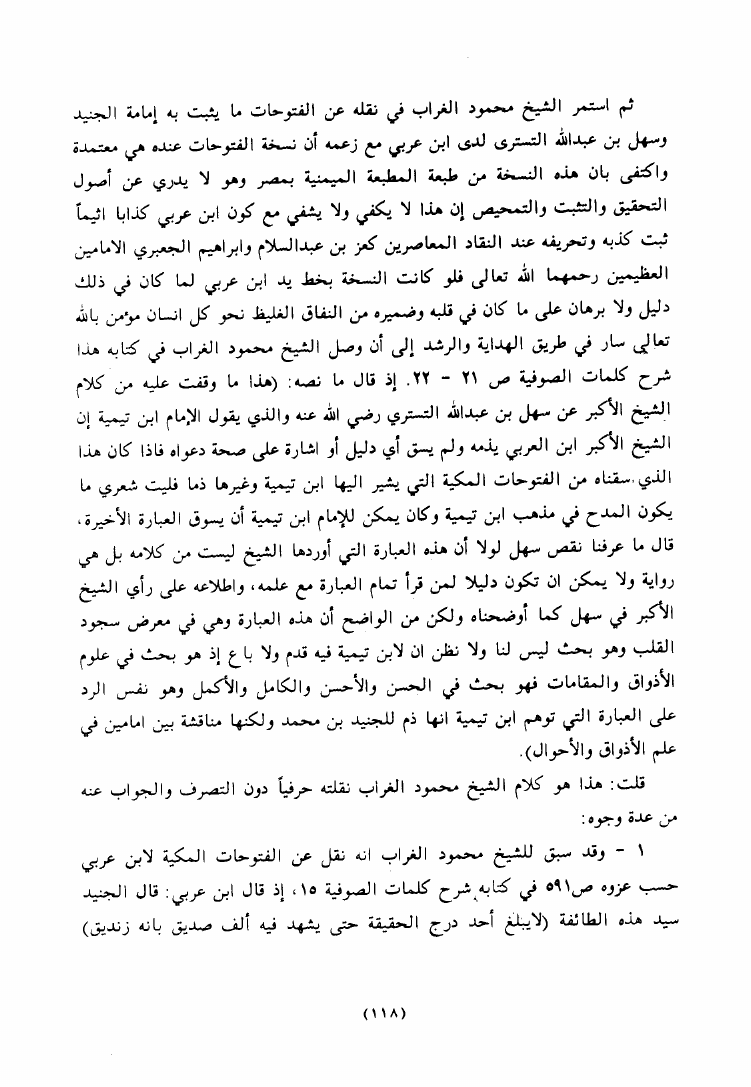 ثم استمر الشيخ محمود الغراب في نقله عن الفتوحات ما يثبت به إمامة الجنيد
وسهل بن عبدالله التسترى لدى ابن عربي مع زعمه أن نسخة الفتوحات عنده هي معتمدة
واكتفى بان هذه النسخة من طبعة المطبعة الميمنية بمصر وهو لا يدري عن أصول
التحقيق والتثبت والتمحيص إن هذا لا يكفي ولا يشفي مع كون ابن عربي كذابا اثيماً
ثبت كذبه وتحريفه عند النقاد المعاصرين كعز بن عبدالسلام وابراهيم الجعبري الامامين
العظيمين رحمهما الله تعالى فلو كانت النسخة بخط يد ابن عربي لما كان في ذلك
دليل ولا برهان على ما كان في قلبه وضميره من النفاق الغليظ نحو كل انسان مؤمن بالله
تعالى سار في طريق الهداية والرشد إلى أن وصل الشيخ محمود الغراب في كتابه هذا
شرح كلمات الصوفية ص ٢١ – ٢٢. إذ قال ما نصه: (هذا ما وقفت عليه من كلام
الشيخ الأكبر عن سهل بن عبدالله التستري رضي الله عنه والذي يقول الإمام ابن تيمية إن
الشيخ الأكبر ابن العربي يذمه ولم يسق أي دليل أو اشارة على صحة دعواه فاذا كان هذا
الذي سقناه من الفتوحات المكية التي يشير اليها ابن تيمية وغيرها ذما فليت شعري ما
يكون المدح في مذهب ابن تيمية وكان يمكن للإمام ابن تيمية أن يسوق العبارة الأخيرة،
قال ما عرفنا نقص سهل لولا أن هذه العبارة التي أوردها الشيخ ليست من كلامه بل هي
رواية ولا يمكن ان تكون دليلا لمن قرأ تمام العبارة مع علمه، واطلاعه على رأي الشيخ
الأكبر في سهل كما أوضحناه ولكن من الواضح أن هذه العبارة وهي في معرض سجود
القلب وهو بحث ليس لنا ولا نظن ان لابن تيمية فيه قدم ولا باع إذ هو بحث في علوم
الأذواق والمقامات فهو بحث في الحسن والأحسن والكامل والأكمل وهو نفس الرد
على العبارة التي توهم ابن تيمية انها ذم للجنيد بن محمد ولكنها مناقشة بين امامين في
علم الأذواق والأحوال).
قلت: هذا هو كلام الشيخ محمود الغراب نقلته حرفياً دون التصرف والجواب عنه
من عدة وجوه:
١ – وقد سبق للشيخ محمود الغراب انه نقل عن الفتوحات المكية لابن عربي
حسب عزوه ص٥٩١ في كتابه شرح كلمات الصوفية ١٥، إذ قال ابن عربي: قال الجنيد
سيد هذه الطائفة (لايبلغ أحد درج الحقيقة حتى يشهد فيه ألف صديق بانه زنديق)
(١١٨)